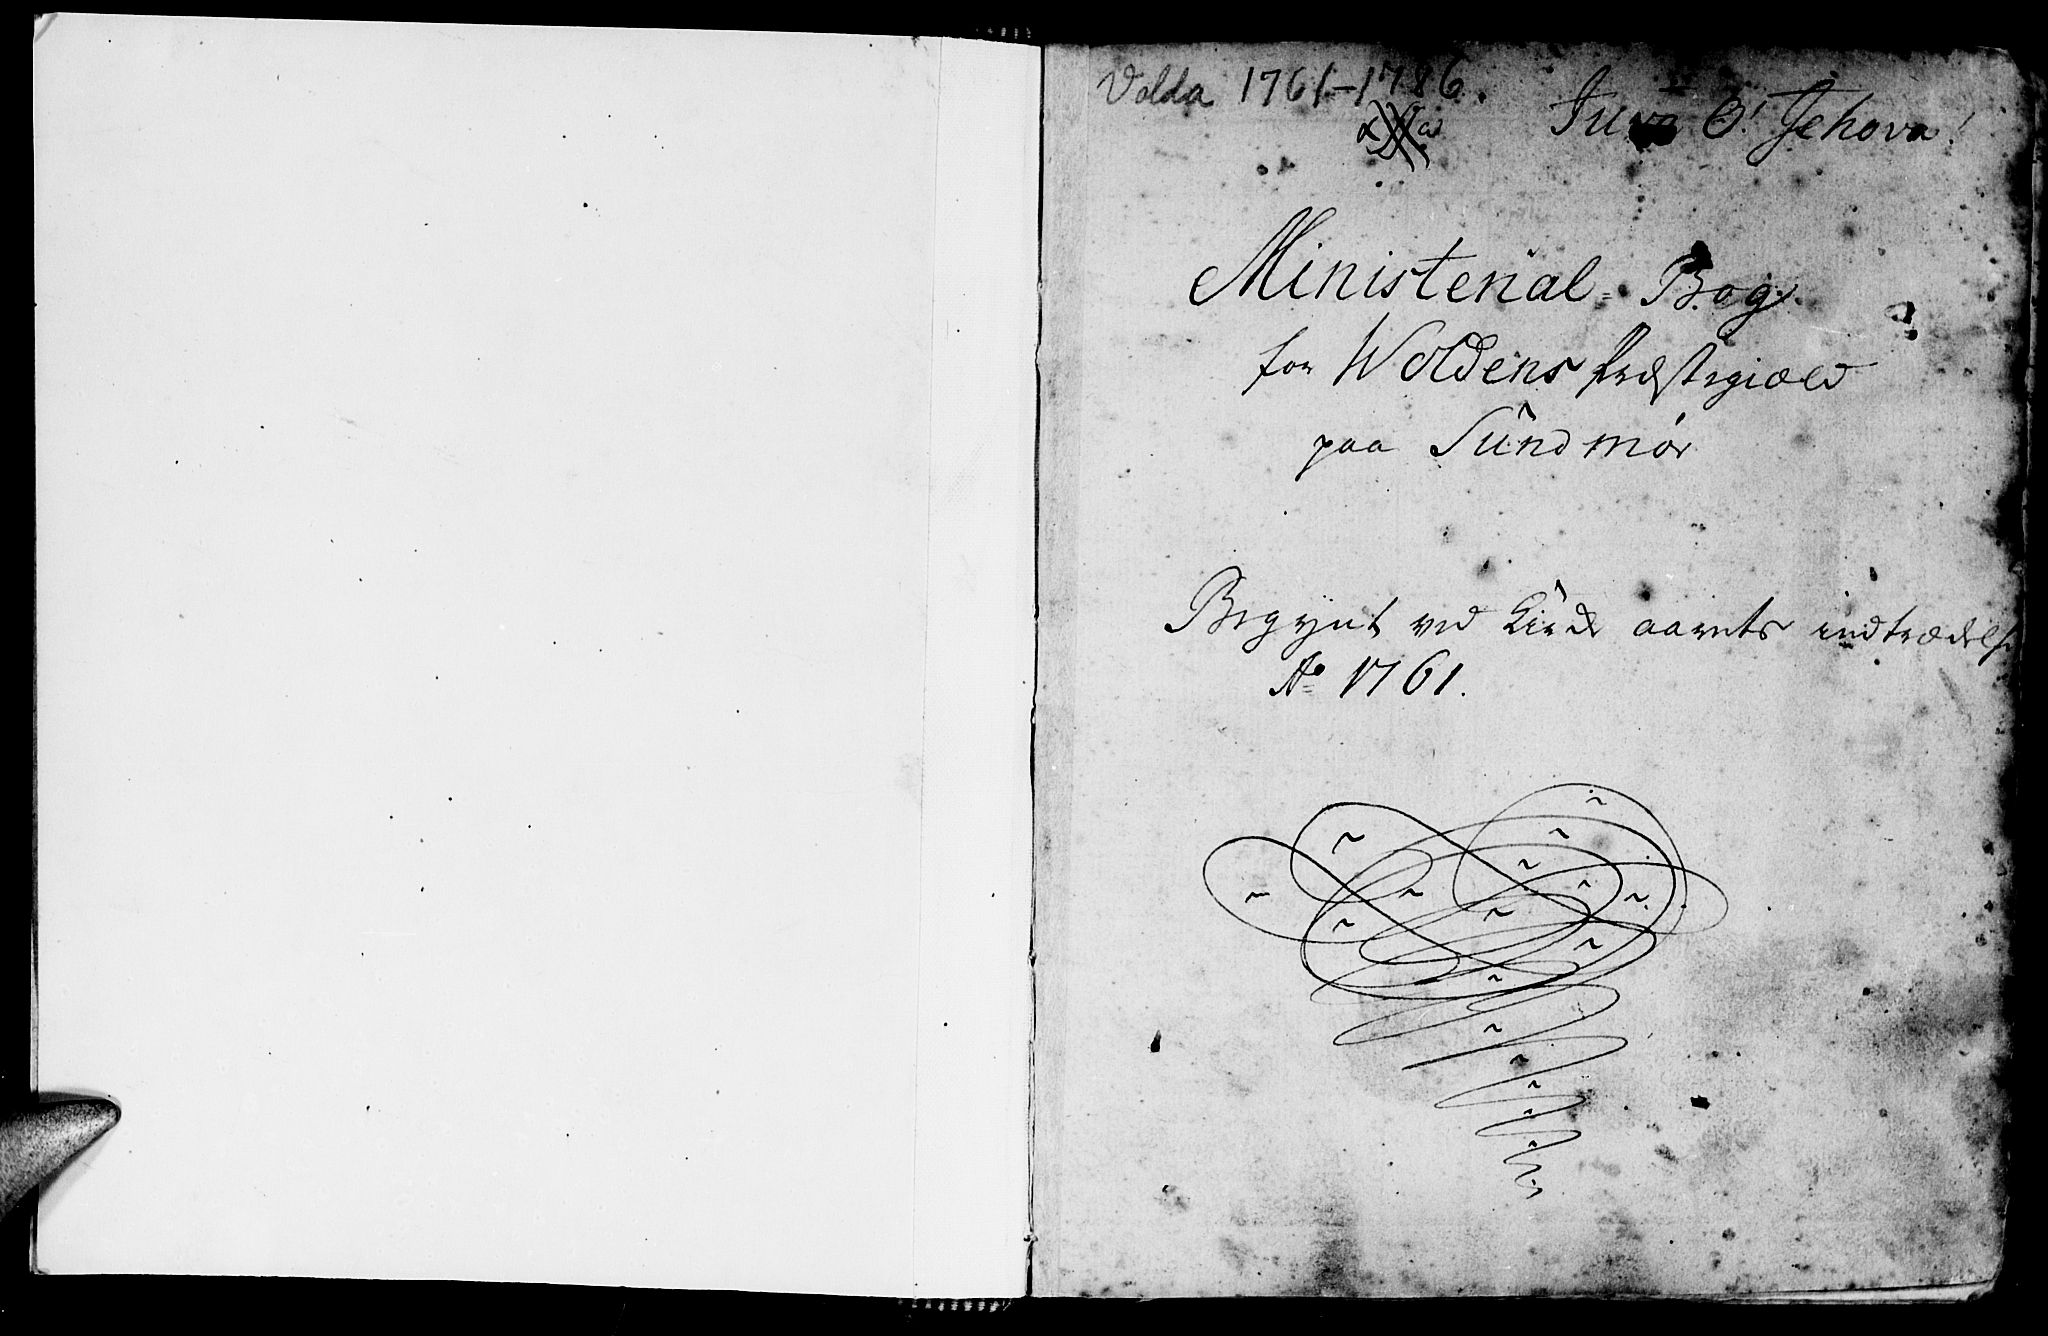 Volda 1761-1786.
Juva O! Jehova!
Ministerial-Bog
for Woldens Præstegiæld
paa Sûndmør
Begynt ved Kirke aarets indtrædelse
Ao 1761.